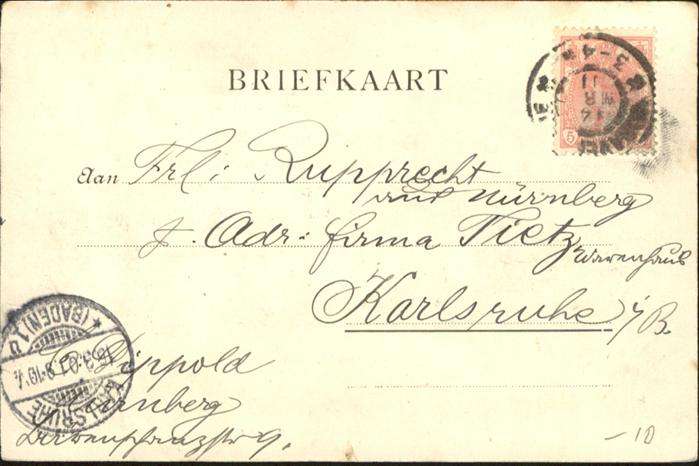 BRIEFKAART
Aan Frl: Rupprecht
aus Nürnberg
z. Adr: Firma Tietz
Warenhaus
Karlsruhe i/B.
Lippold
Nürnberg
9.
KARLSRUHE
(BADEN) 1
3-4
5
-10